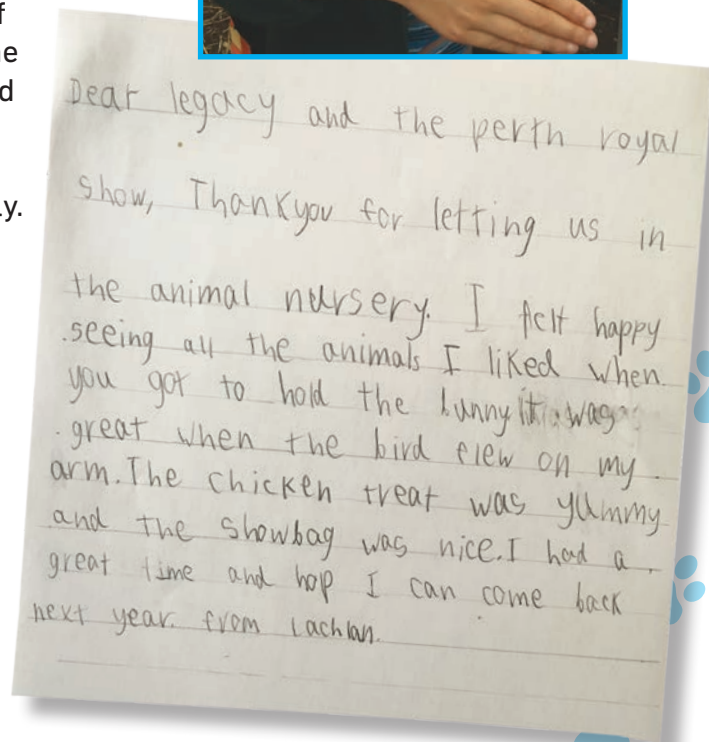 f
e
d
y.
Dear legacy and the perth royal
show, Thankyou for letting us in
the animal nursery. I felt happy
.seeing all the animals I liked when
you got to hold the bunny it was
great when the bird flew on my
arm. The chicken treat was yummy
and the showbag was nice. I had a
great time and hop I can come back
next year. from Lachlan.